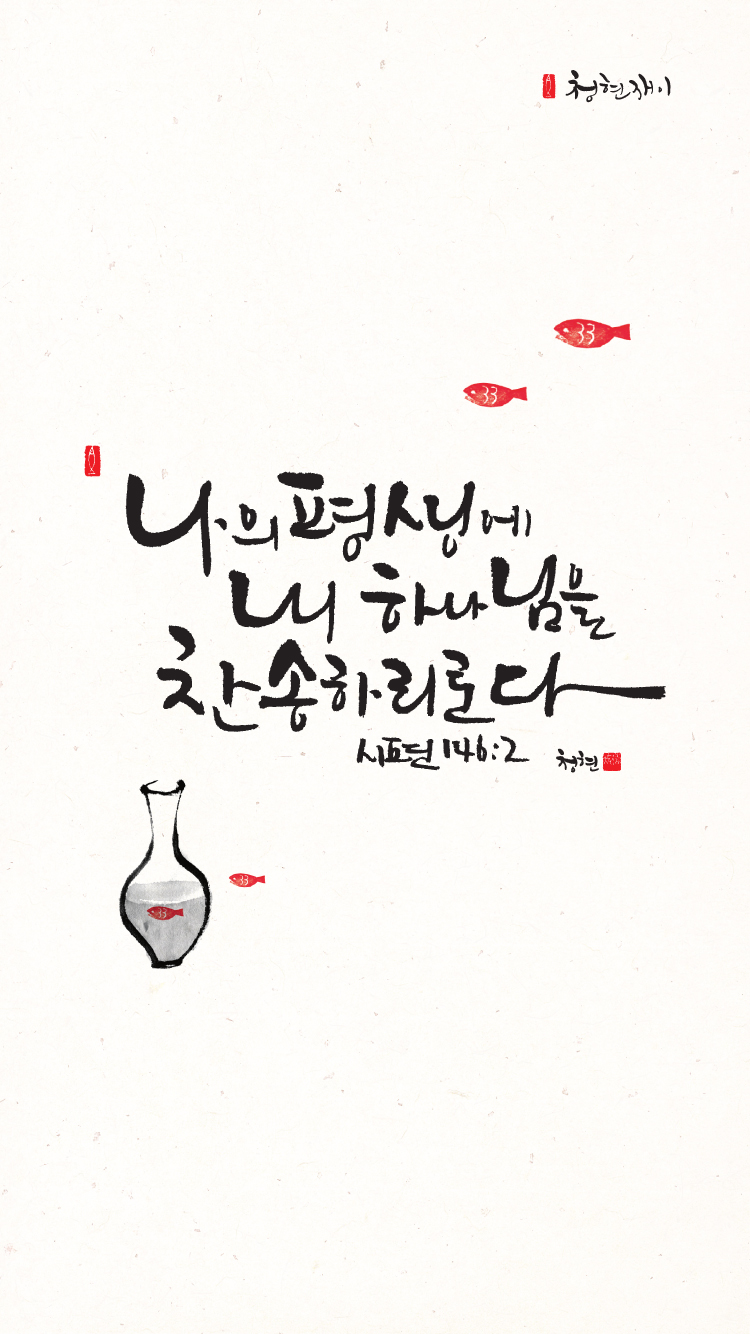 청현재이
나의 평생에
내 하나님을
찬송하리로다
시편 146:2 청현